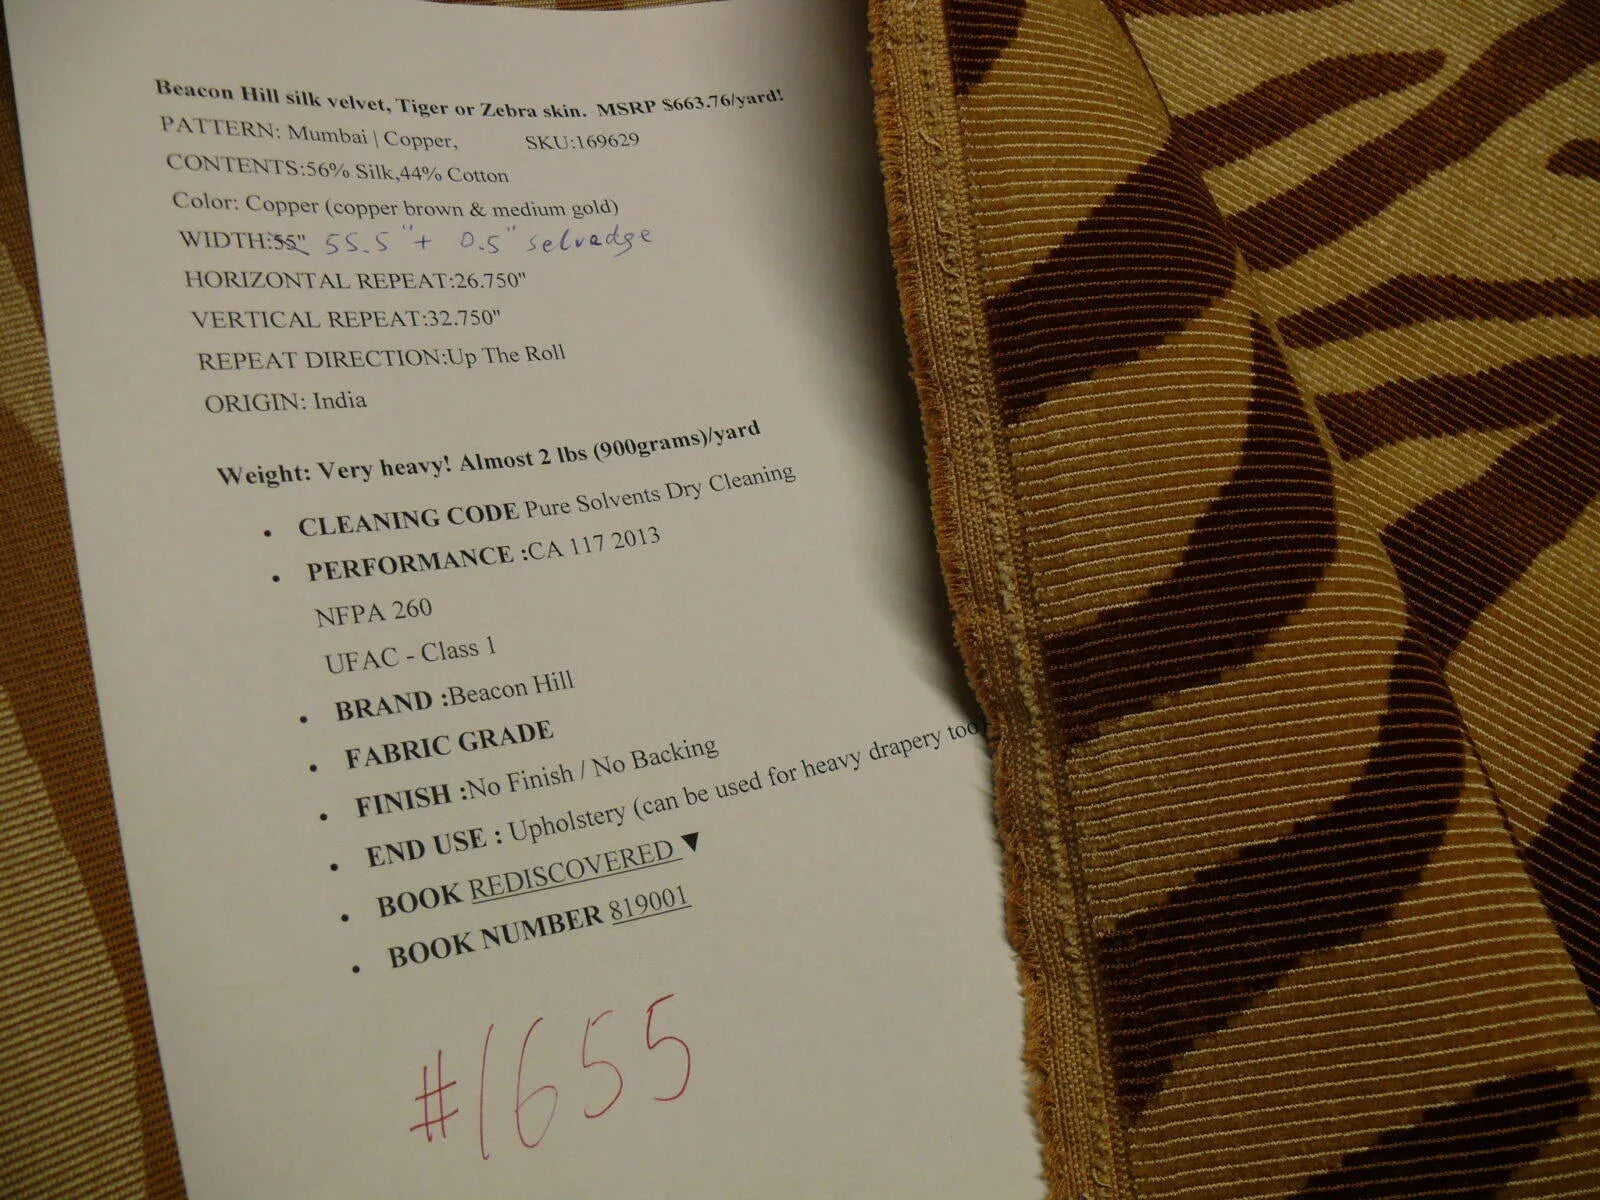 Beacon Hill silk velvet, Tiger or Zebra skin. MSRP $663.76/yard!
PATTERN: Mumbai | Copper, SKU:169629
CONTENTS:56% Silk,44% Cotton
Color: Copper (copper brown & medium gold)
WIDTH:55" 55.5" + 0.5" selvadge
HORIZONTAL REPEAT:26.750"
VERTICAL REPEAT:32.750"
REPEAT DIRECTION:Up The Roll
ORIGIN: India
Weight: Very heavy! Almost 2 lbs (900grams)/yard
• CLEANING CODE Pure Solvents Dry Cleaning
• PERFORMANCE :CA 117 2013
NFPA 260
UFAC - Class 1
• BRAND :Beacon Hill
• FABRIC GRADE
• FINISH :No Finish / No Backing
• END USE : Upholstery (can be used for heavy drapery too)
• BOOK REDISCOVERED ▼
• BOOK NUMBER 819001
#1655